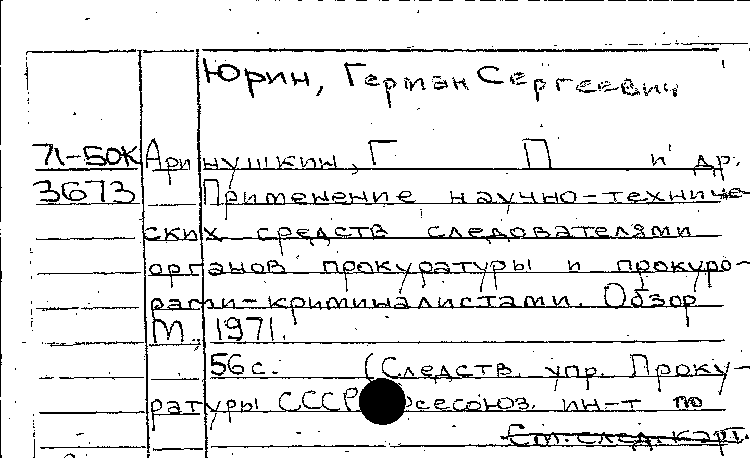 Юрин, Герман Сергеевич
71-БОК Аринушкин, Г П и др.
3673 Применение научно-техниче-
ских средств следователями
органов прокуратуры и прокуро-
рами-криминалистами. Обзор
М., 1971.
56 с. (Следств. упр. Проку-
ратуры СССР. Всесоюз. ин-т по
См. след. карт.